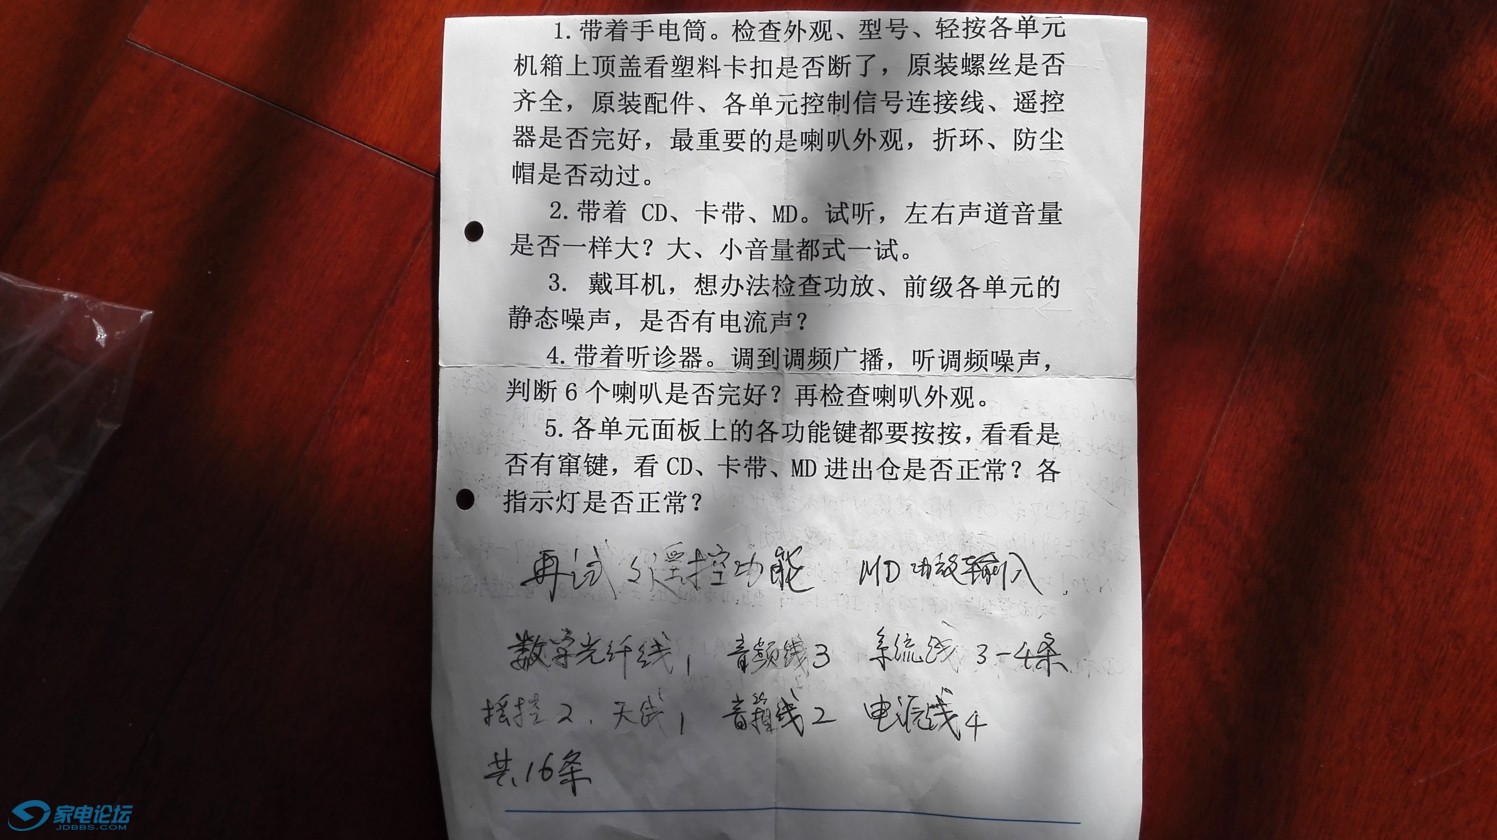 1.带着手电筒。检查外观、型号、轻按各单元
机箱上顶盖看塑料卡扣是否断了，原装螺丝是否
齐全，原装配件、各单元控制信号连接线、遥控
器是否完好，最重要的是喇叭外观，折环、防尘
帽是否动过。
2.带着 CD、卡带、MD。试听，左右声道音量
是否一样大？大、小音量都式一试。
3. 戴耳机，想办法检查功放、前级各单元的
静态噪声，是否有电流声？
4.带着听诊器。调到调频广播，听调频噪声，
判断6个喇叭是否完好？再检查喇叭外观。
5.各单元面板上的各功能键都要按按，看看是
否有窜键，看CD、卡带、MD进出仓是否正常？各
指示灯是否正常？
再试遥控功能 MD 输入
数字光纤线1 音频线3 系统线 3-4条
摇控2、天线1 音箱线2 电源线4
共16条
家电论坛
JDBBS.COM